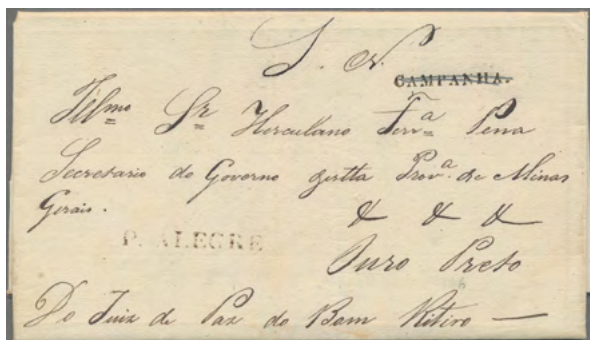 S. N.
CAMPANHA.
Illmo Sr Herculano Ferra Penna
Secretario do Governo desta Prova. de Minas
Gerais. & & &
P. ALEGRE
Ouro Preto
Do Juiz de Paz do Bom Retiro —